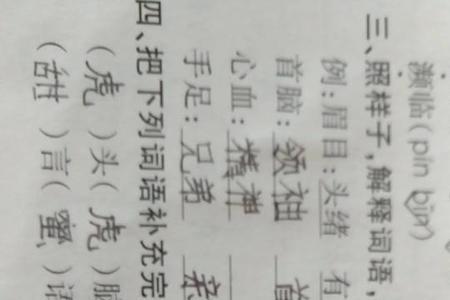 濒临(pīn bīn)
三、照样子,解释词语,
例:眉目:头绪 有
首脑:领袖 首
心血:精神
手足:兄弟 亲
四、把下列词语补充完
(虎)头(虎)脑
(甜)言(蜜)语